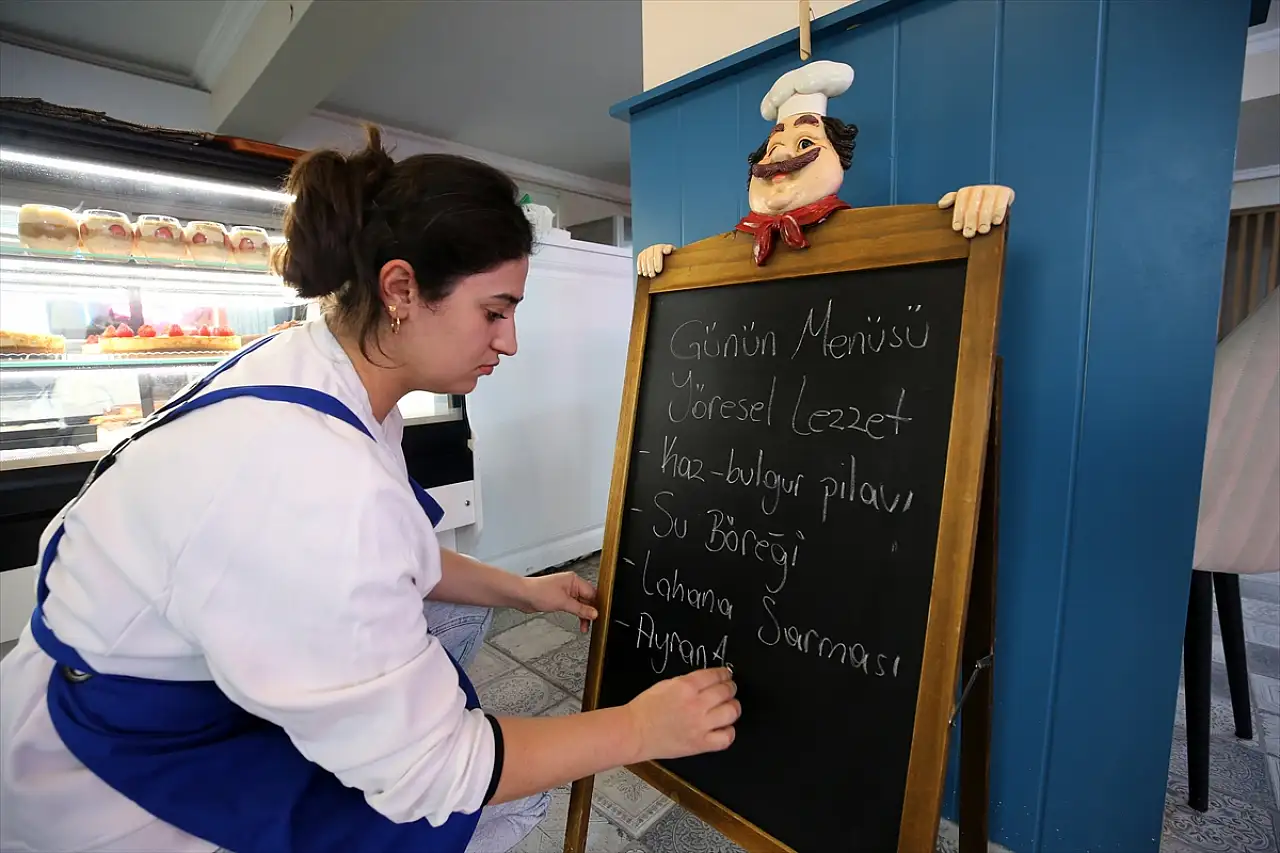 Günün Menüsü
Yöresel Lezzet
- Kaz-bulgur pilavı
- Su Böreği
- Lahana Sarması
- Ayran A